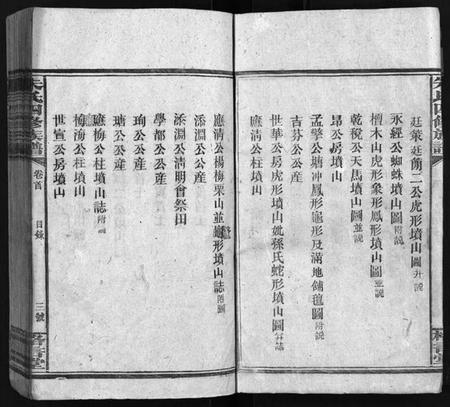 廷策廷蘭二公虎形墳山圖并說
永經公蜘蛛墳山圖附說
檀木山虎形象形鳳形墳山圖並說
乾稅公天馬墳山圖並說
昂公房墳山
孟擎公塘冲鳳形龜形及滿地鋪氊圖附說
吉芬公公產
世華公房虎形墳山妣孫氏蛇形墳山圖
應清公楊梅栗山並形墳山誌附圖
添淵公公產
添淵公清明會祭田
學都公公產
珣公公產
瑭公公產
應梅公柱墳山誌附說
梅海公柱墳山
世宣公房墳山
朱氏四修族譜
卷首
目錄
三號